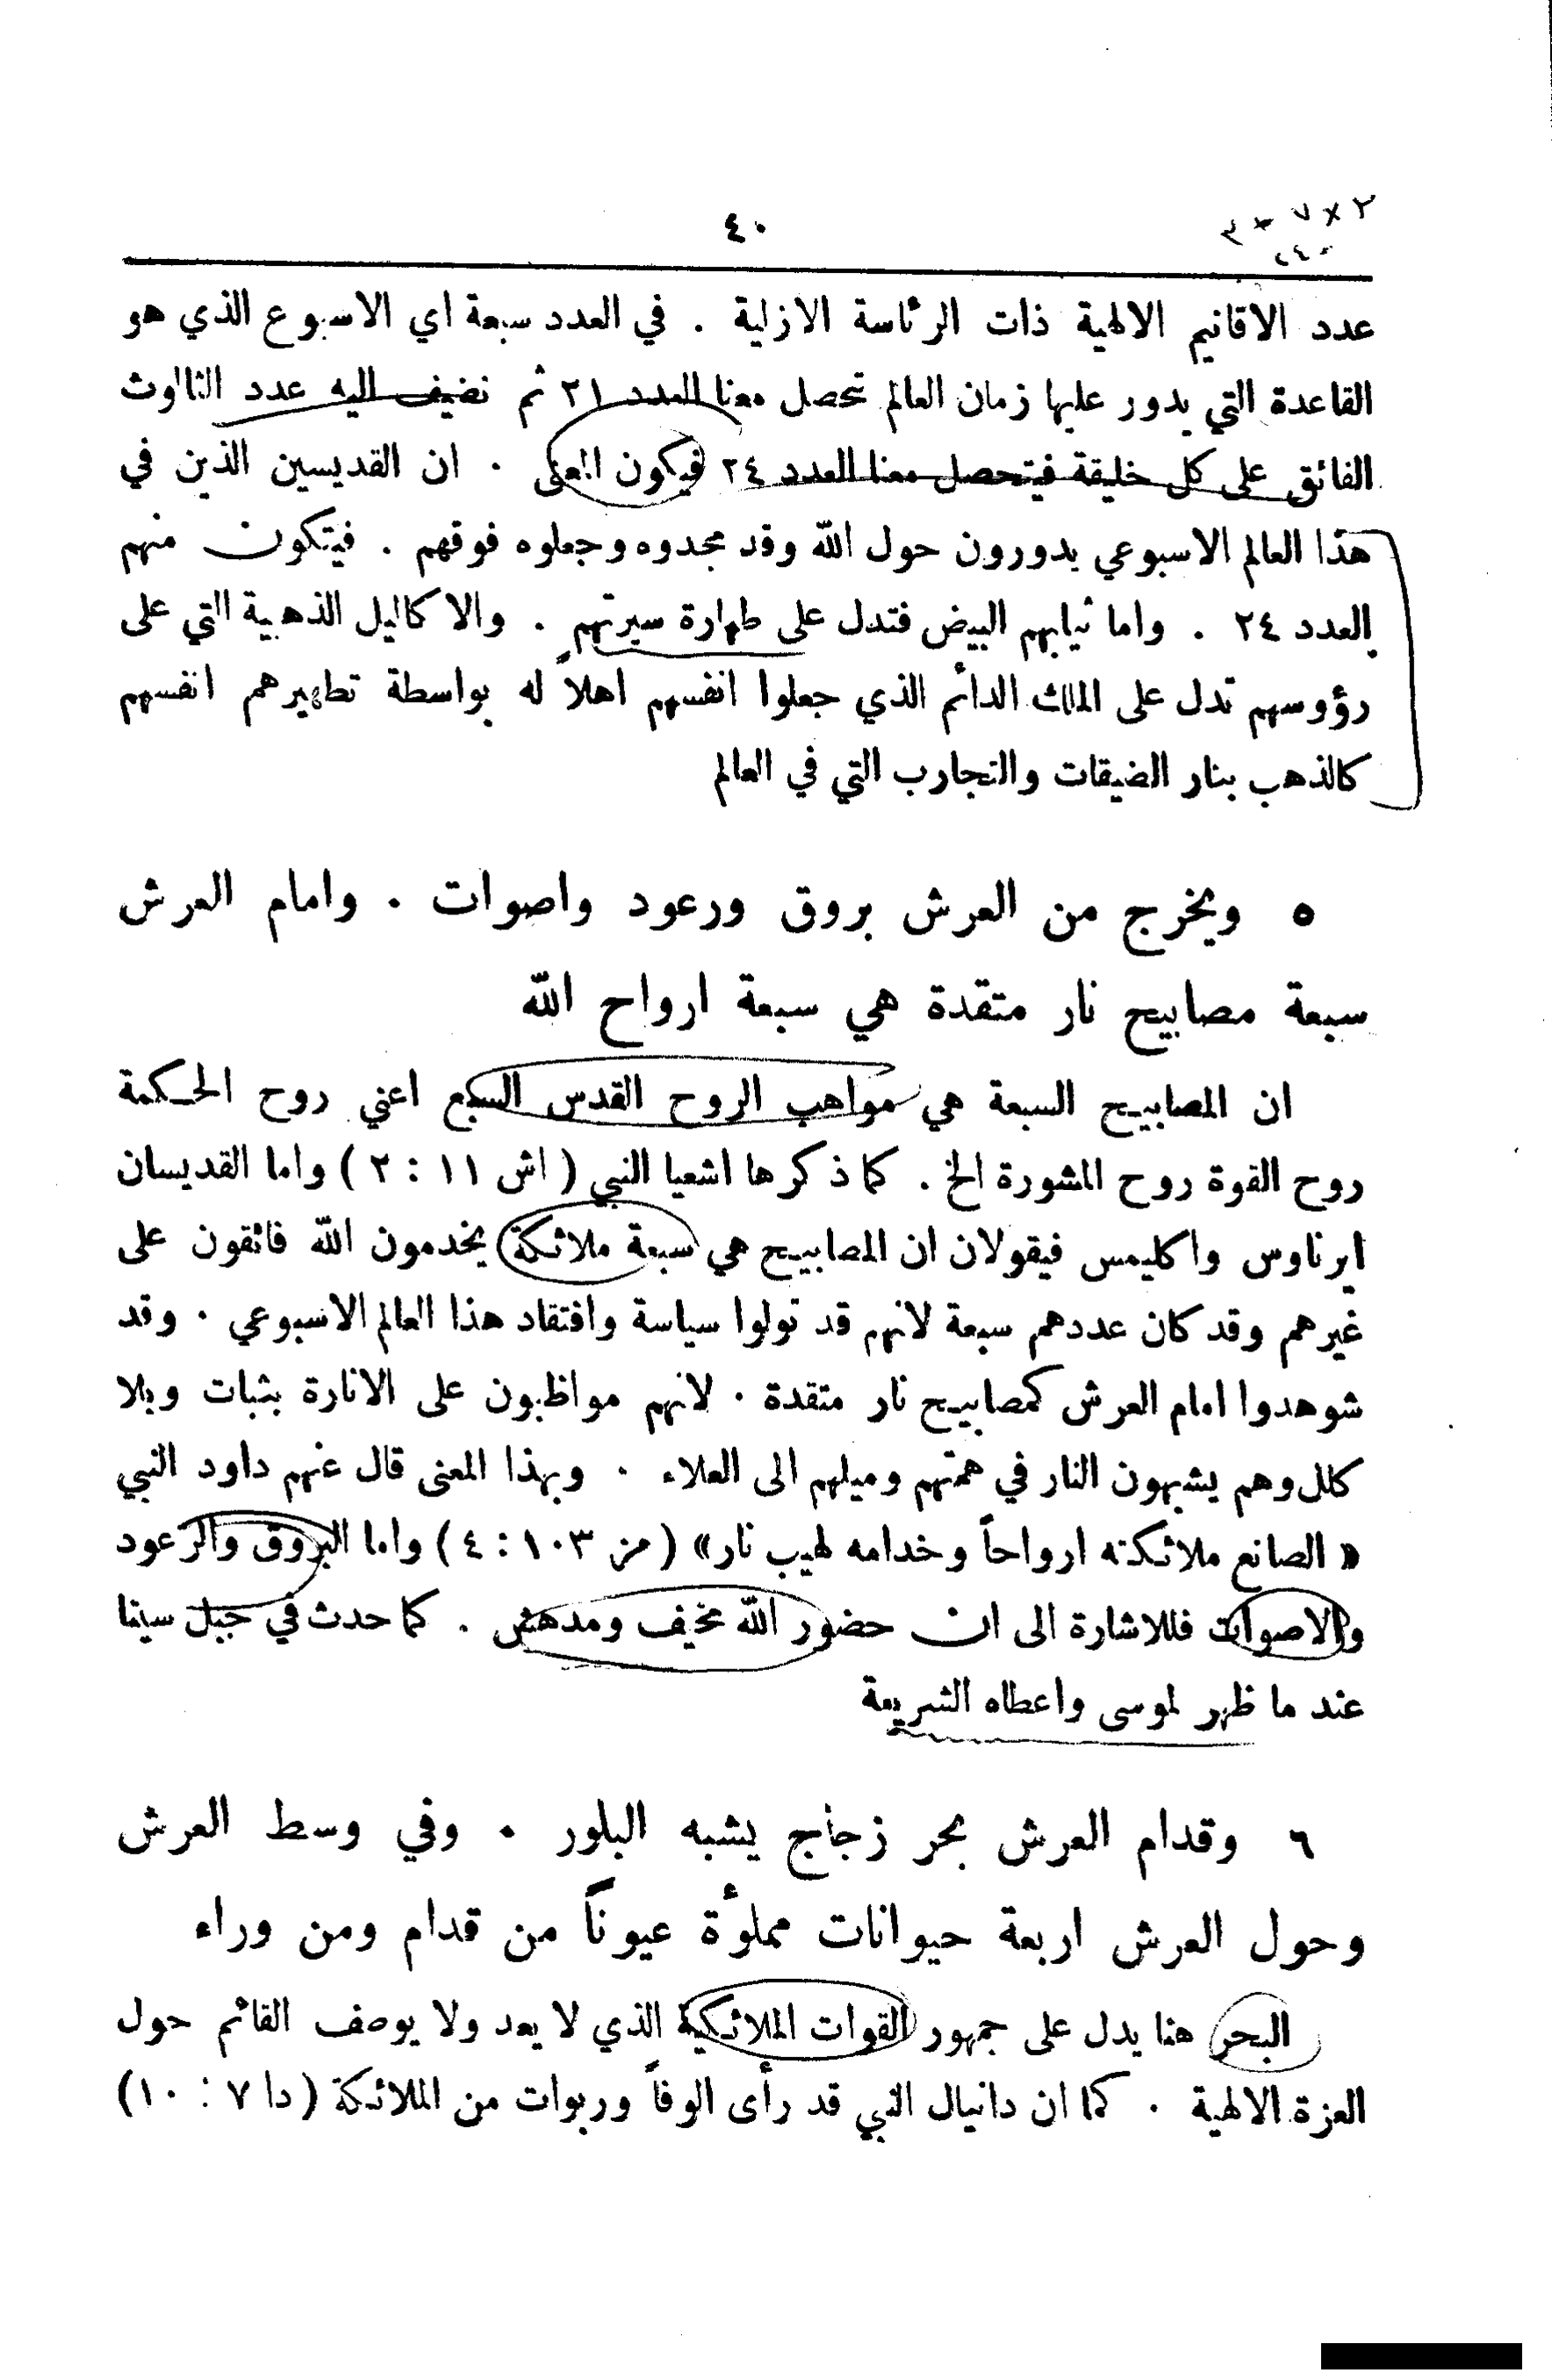 ٤٠
٣ + ٧ × ٣
عدد الاقانيم الالهية ذات الرئاسة الازلية . في العدد سبعة اي الاسبوع الذي هو
القاعدة التي يدور عليها زمان العالم تحصل معنا العدد ٢١ ثم نضيف اليه عدد الثالوث
الفائق على كل خليقة فيتحصل معنا العدد ٢٤ فيكون المعنى . ان القديسين الذين في
هذا العالم الاسبوعي يدورون حول الله وقد مجدوه وجعلوه فوقهم . فيتكون منهم
العدد ٢٤ . واما ثيابهم البيض فتدل على طهارة سيرتهم . والاكاليل الذهبية التي على
رؤوسهم تدل على الملك الدائم الذي جعلوا انفسهم اهلاً له بواسطة تطهيرهم انفسهم
كالذهب بنار الضيقات والتجارب التي في العالم
٥ ويخرج من العرش بروق ورعود واصوات . وامام العرش
سبعة مصابيح نار متقدة هي سبعة ارواح الله
ان المصابيح السبعة هي مواهب الروح القدس السبع اعني روح الحكمة
روح القوة روح المشورة الخ . كما ذكرها اشعيا النبي ( اش ١١ : ٢ ) واما القديسان
ايرناوس واكليمس فيقولان ان المصابيح هي سبعة ملائكة يخدمون الله فائقون على
غيرهم وقد كان عددهم سبعة لانهم قد تولوا سياسة وافتقاد هذا العالم الاسبوعي . وقد
شوهدوا امام العرش كمصابيح نار متقدة . لانهم مواظبون على الانارة بثبات وبلا
كلل وهم يشبهون النار في همتهم وميلهم الى العلاء . وبهذا المعنى قال عنهم داود النبي
« الصانع ملائكته ارواحاً وخدامه لهيب نار» (مز ١٠٣ : ٤) واما البروق والرعود
والاصوات فللاشارة الى ان حضور الله مخيف ومدهش . كما حدث في جبل سينا
عند ما ظهر لموسى واعطاه الشريعة
٦ وقدام العرش بحر زجاج يشبه البلور . وفي وسط العرش
وحول العرش اربعة حيوانات مملؤة عيوناً من قدام ومن وراء
البحر هنا يدل على جمهور القوات الملائكية الذي لا يعد ولا يوصف القائم حول
العزة الالهية . كما ان دانيال النبي قد رأى الوفاً وربوات من الملائكة (دا ٧ : ١٠)